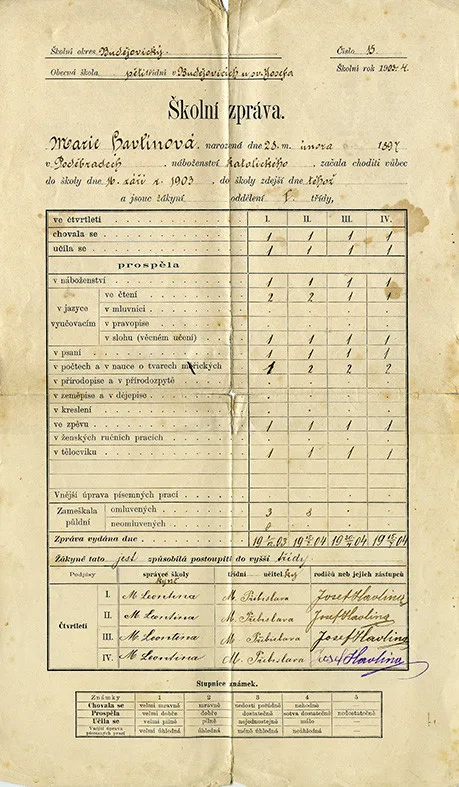 Školní okres Budějovický. Číslo 15.
Obecná škola pětitřídní v Budějovicích u sv. Josefa Školní rok 1903-4.
Školní zpráva.
Marie Havlinová, narozená dne 23. m. února 1897
v Poděbradech, náboženství katolického, začala choditi vůbec
do školy dne 16. září r. 1903, do školy zdejší dne téhož
a jsouc žákyní oddělení I. třídy,
ve čtvrtletí I. II. III. IV.
chovala se 1 1 1 1
učila se 1 1 1 1
prospěla
v náboženství 1 1 1 1
v jazyce vyučovacím
ve čtení 2 2 1 1
v mluvnici . . . .
v pravopise . . . .
v slohu (věcném učení) 1 1 1 1
v psaní 1 1 1 1
v počtech a v nauce o tvarech měřických 1 2 2 2
v přírodopise a v přírodozpytě . . . .
v zeměpise a v dějepise . . . .
v kreslení . . . .
ve zpěvu 1 1 1 1
v ženských ručních pracích . . . .
v tělocviku 1 1 1 1
Vnější úprava písemných prací . . . .
Zameškala půldní
omluvených 3 8
neomluvených
Zpráva vydána dne
Žákyně tato jest způsobilá postoupiti do vyšší třídy.
Podpisy správce školy třídní učitel rodičů neb jejich zástupců
Čtvrtletí
I. M. Leontina M. Přibislava Josef Havlina
II. M. Leontina M. Přibislava Josef Havlina
III. M. Leontina M. Přibislava Josef Havlina
IV. M. Leontina M. Přibislava Josef Havlina
Stupnice známek.
Známky 1 2 3 4 5
Chovala se velmi mravně mravně nedosti pořádně nahodně
Prospěla velmi dobře dobře dostatečně sotva dostatečně nedostatečně
Učila se velmi pilně pilně nejednostejně málo —
Vnější úprava písemných prací velmi úhledná úhledná méně úhledná neúhledná —